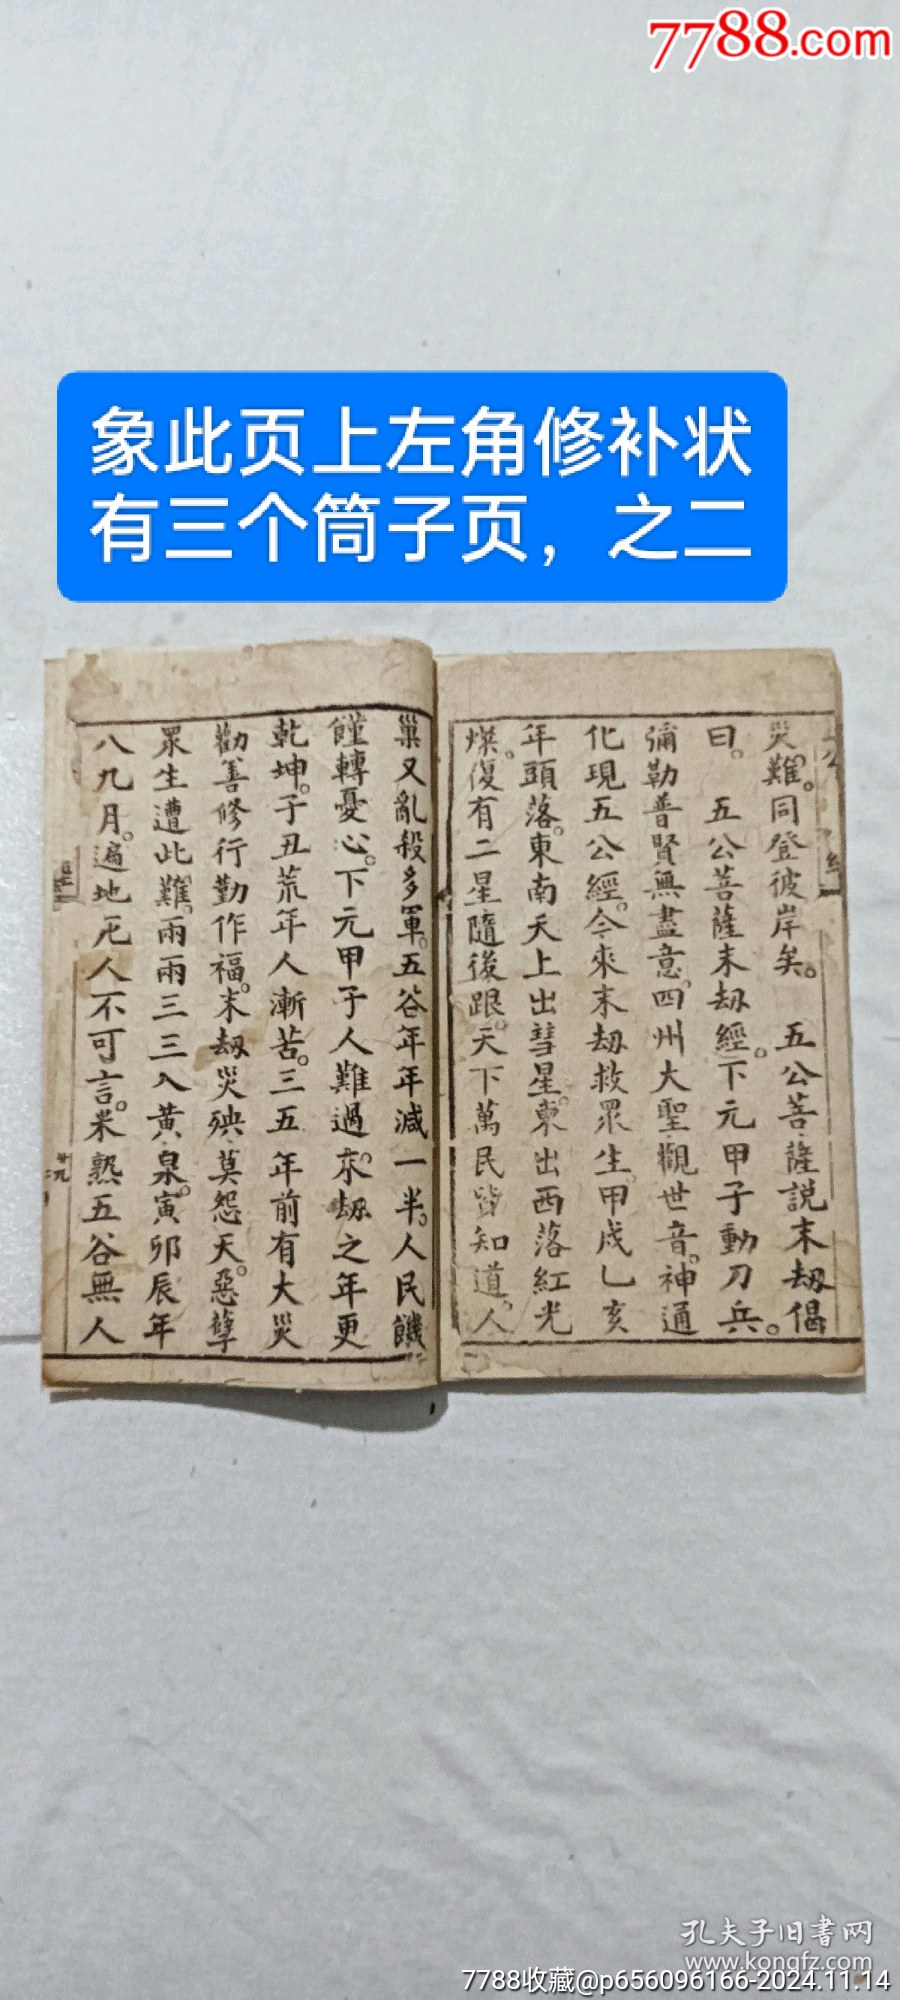 7788.com
象此页上左角修补状
有三个筒子页，之二
災難。同登彼岸矣。　五公菩薩説末劫偈
曰。　五公菩薩末劫經。下元甲子動刀兵。
彌勒普賢無盡意。四州大聖觀世音。神通
化現五公經。今來末劫救眾生。甲戌乙亥
年頭落。東南天上出彗星。東出西落紅光
煤。復有二星隨後跟。天下萬民皆知道。人
巢又亂殺多軍。五谷年年減一半。人民饑
饉轉憂心。下元甲子人難過。末劫之年更
乾坤。子丑荒年人漸苦。三五年前有大災
勸善修行勤作福。末劫災殃莫怨天。惡孽
眾生遭此難。兩兩三三入黃泉。寅卯辰年
八九月。遍地死人不可言。米熟五谷無人
廿九
孔夫子旧书网
www.kongfz.com
7788收藏@p656096166-2024.11.14